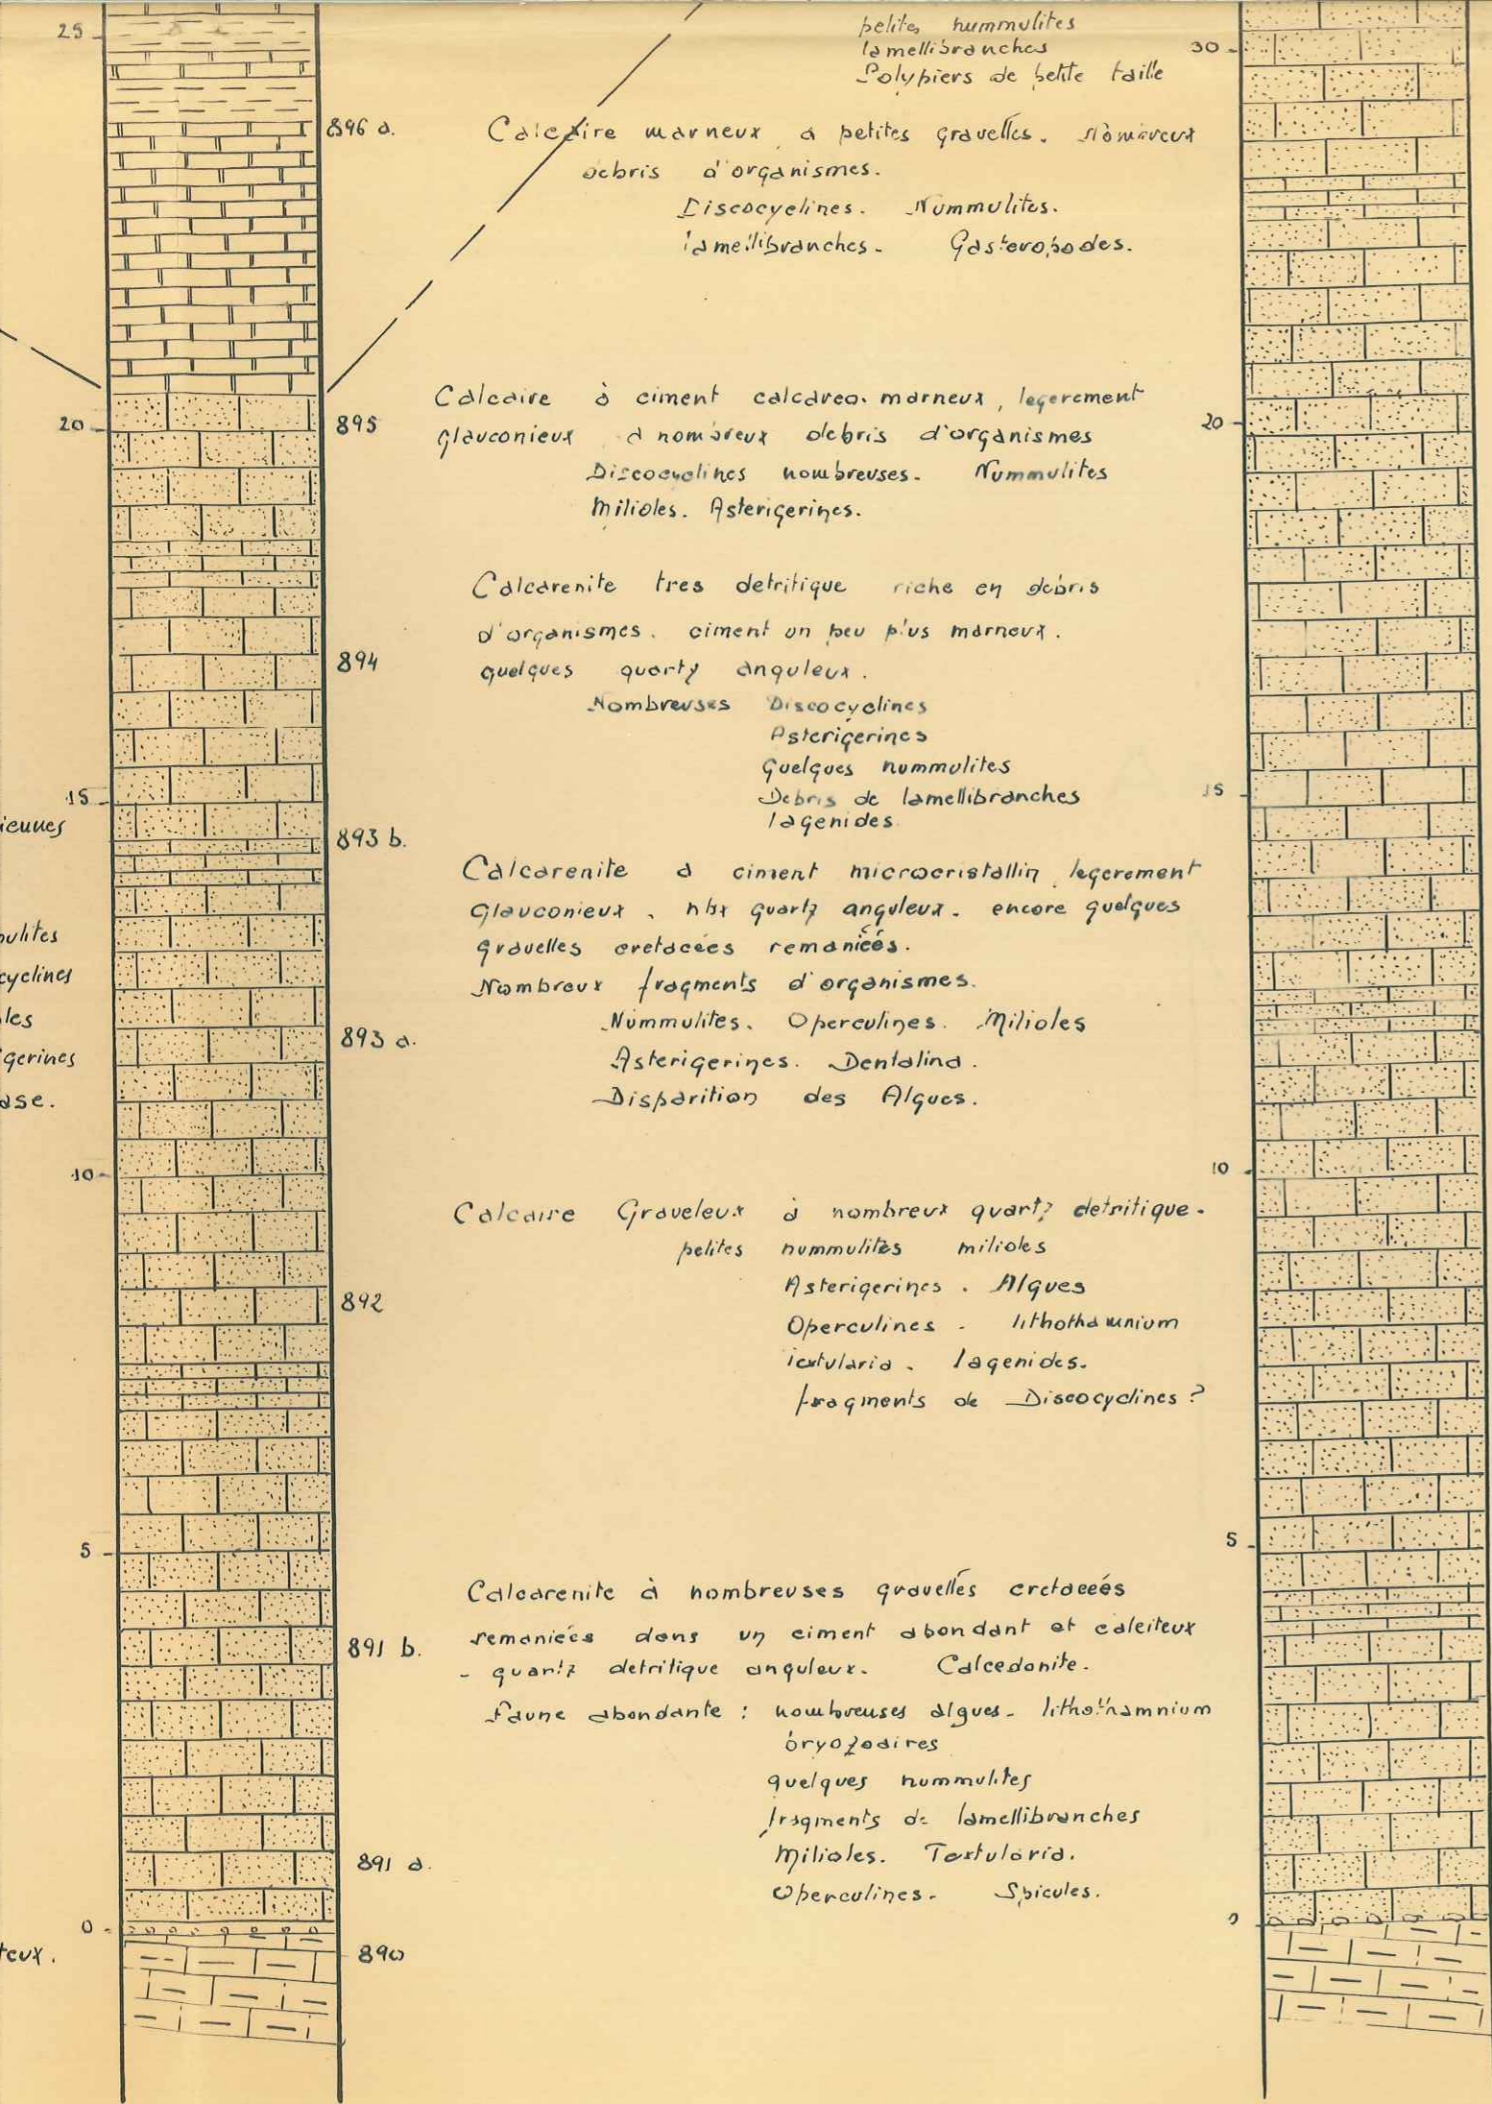 petites nummulites
lamellibranches
Polypiers de petite taille
25
30
896 a.
Calcaire marneux a petites gravelles. Nombreux
debris d'organismes.
Discocyclines. Nummulites.
lamellibranches. Gasteropodes.
20
895
20
Calcaire à ciment calcareo. marneux, legerement
glauconieux a nombreux debris d'organismes
Discocyclines nombreuses. Nummulites
Milioles. Asterigerines.
Calcarenite tres detritique riche en debris
d'organismes. ciment un peu plus marneux.
894
quelques quartz anguleux.
Nombreuses Discocyclines
Asterigerines
Quelques nummulites
15
15
Debris de lamellibranches
lagenides
ieunes
893 b.
Calcarenite a ciment microcristallin legerement
Glauconieux. nbx quartz anguleux. encore quelques
gravelles cretacées remaniées.
Nombreux fragments d'organismes.
Nummulites. Operculines. Milioles
Asterigerines. Dentalina.
Disparition des Algues.
ulites
cyclines
les
893 a.
gerines
ase.
10
10
Calcaire Graveleux à nombreux quartz detritique.
petites nummulites milioles
Asterigerines. Algues
892
Operculines. lithothamnium
textularia. lagenides.
fragments de Discocyclines?
5
5
Calcarenite à nombreuses gravelles cretacées
891 b.
remaniées dans un ciment abondant et calciteux
- quartz detritique anguleux. Calcedonite.
Faune abondante : nombreuses algues. lithothamnium
bryozoaires
quelques nummulites
fragments de lamellibranches
891 a.
Milioles. Textularia.
Operculines. Spicules.
0
0
teux.
890